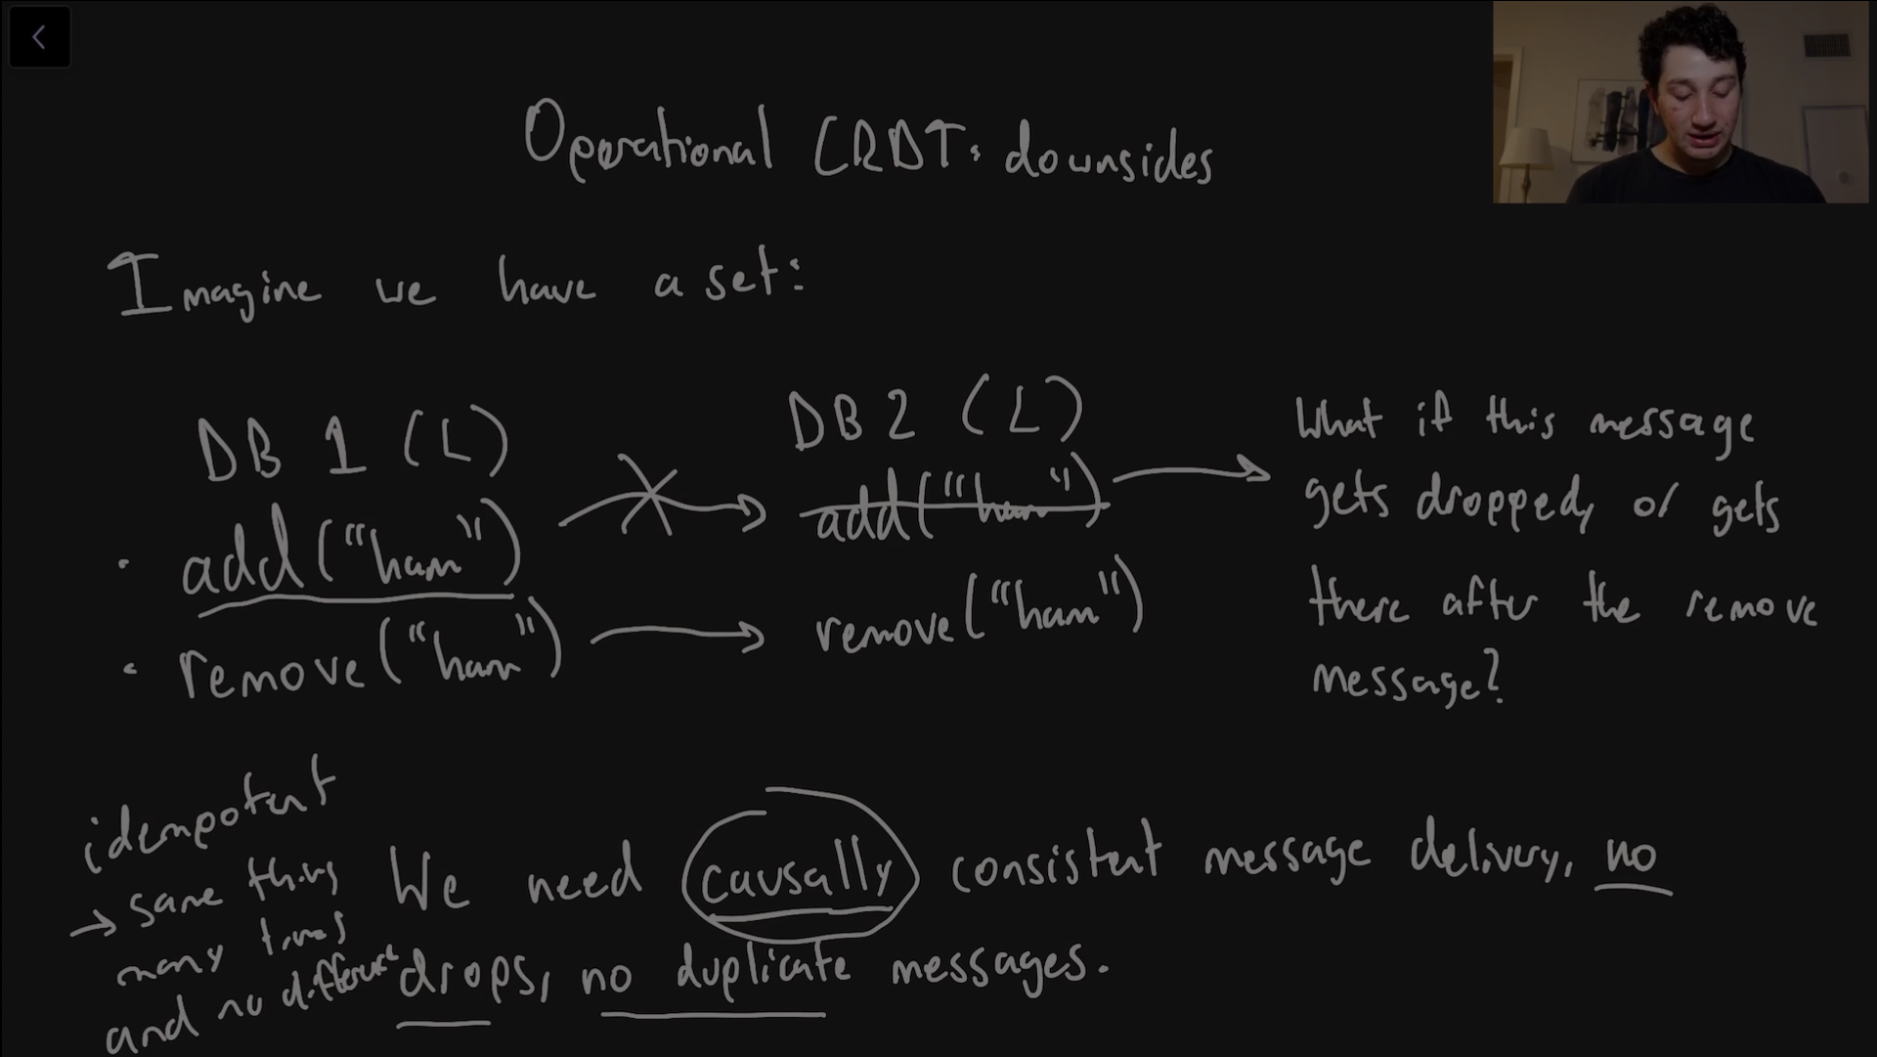 Operational CRDT: downsides
Imagine we have a set:
DB 1 (L)
• add("ham")
• remove("ham")
DB 2 (L)
add("ham")
remove("ham")
What if this message
gets dropped, or gets
there after the remove
message?
idempotent
→ same thing
many times
and no different
We need causally consistent message delivery, no
drops, no duplicate messages.